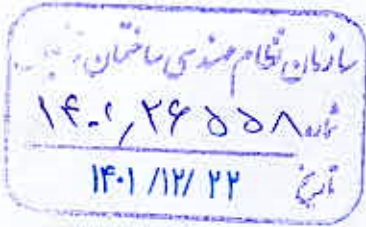 سازمان نظام مهندسی ساختمان
شماره ۱۴۰۱,۲۶۵۵۸
تاریخ ۱۴۰۱/۱۲/۲۲